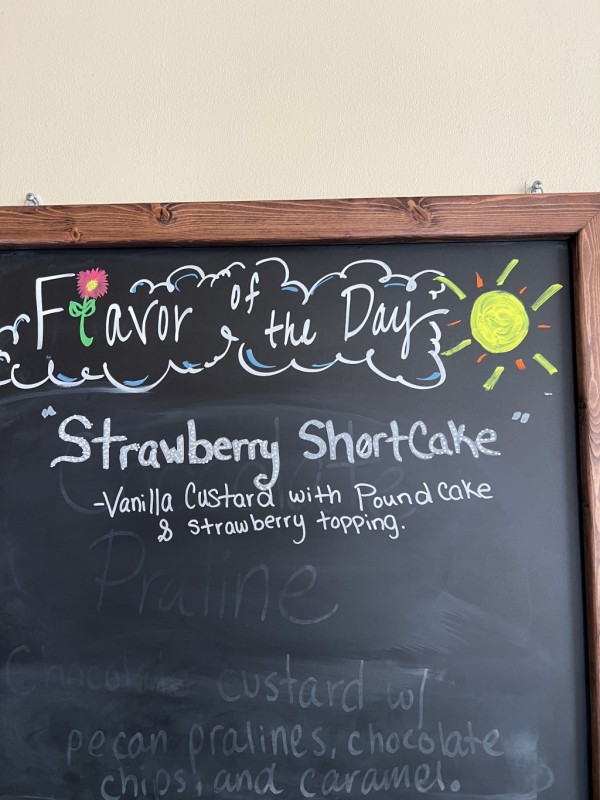 Flavor of the Day
"Strawberry ShortCake"
-Vanilla Custard with Pound Cake
& Strawberry topping.
Chocolate
Praline
Chocolate custard w/
pecan pralines, chocolate
chips, and caramel.